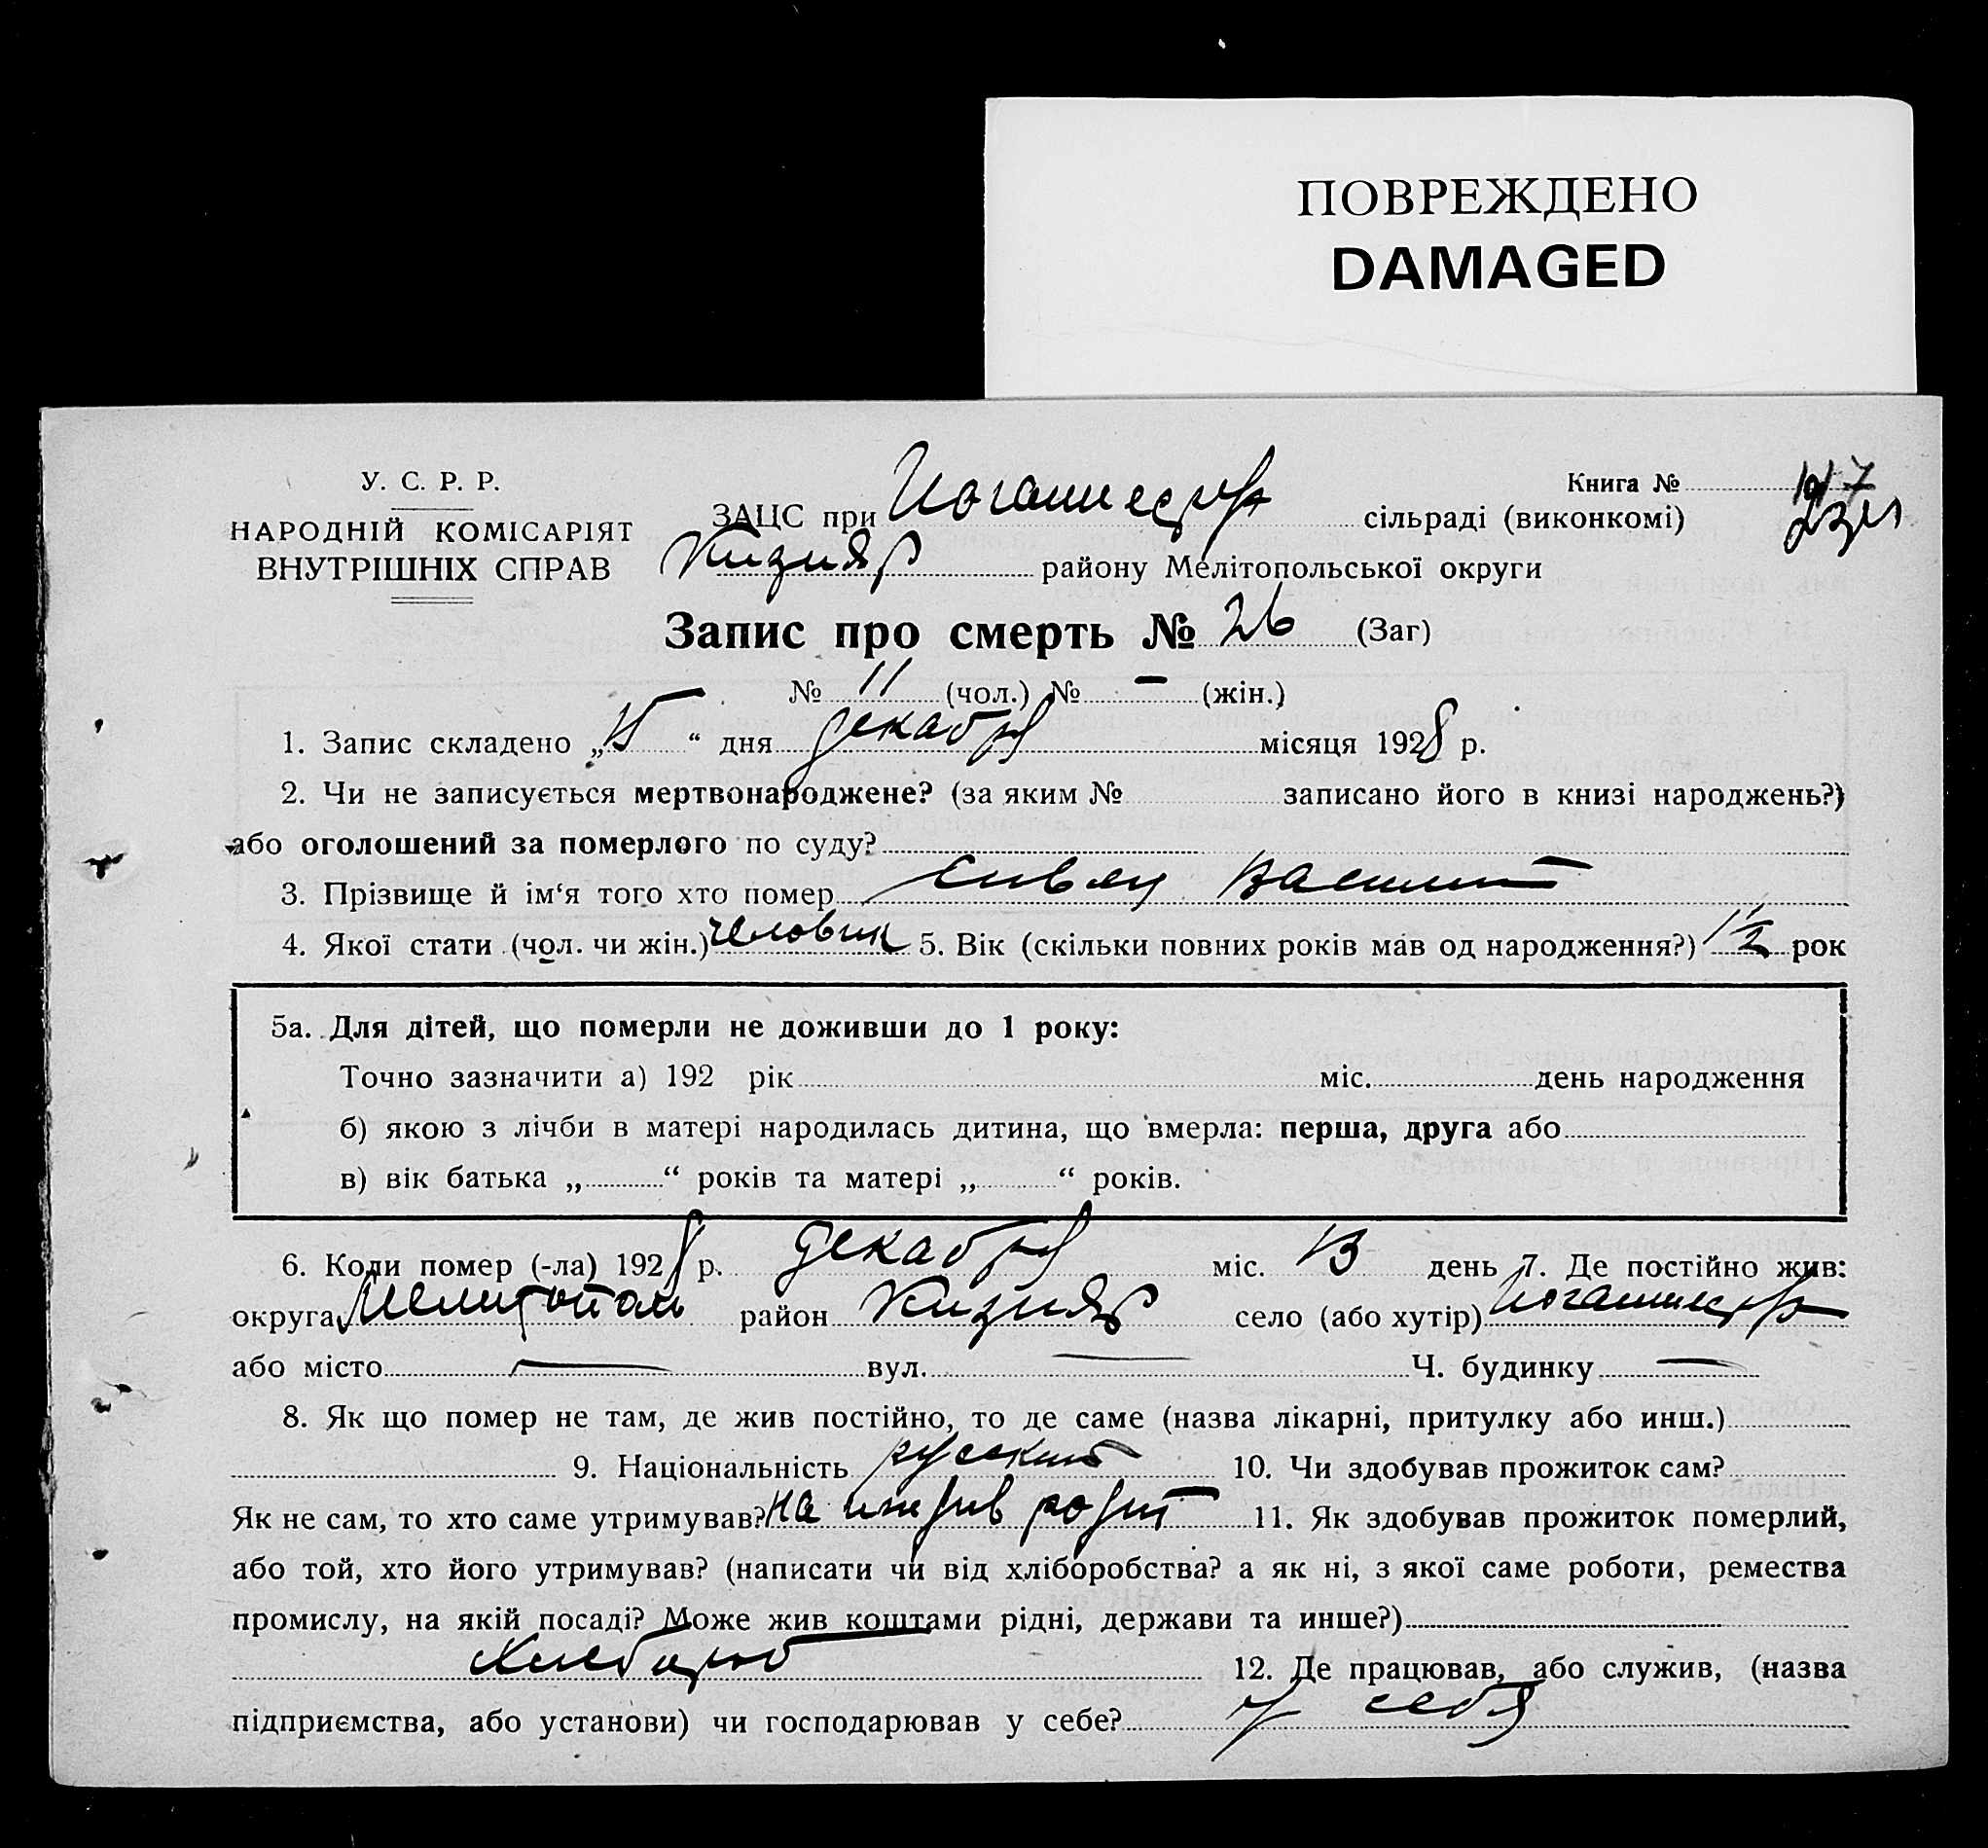 ПОВРЕЖДЕНО
DAMAGED
У. С. Р. Р.
НАРОДНІЙ КОМІСАРІЯТ
ВНУТРІШНІХ СПРАВ
Книга №
ЗАЦС при сільраді (виконкомі)
Кизияр району Мелітопольської округи
Запис про смерть № 26 (Заг)
№ 11 (чол.) № — (жін.)
1. Запис складено „15“ дня декабря місяця 1928 р.
2. Чи не записується мертвонароджене? (за яким № записано його в книзі народжень?)
або оголошений за померлого по суду?
3. Прізвище й ім‘я того хто помер Василий
4. Якої стати (чол. чи жін.) человик 5. Вік (скільки повних років мав од народження?) 1½ рок
5а. Для дітей, що померли не доживши до 1 року:
Точно зазначити а) 192 рік міс. день народження
б) якою з лічби в матері народилась дитина, що вмерла: перша, друга або
в) вік батька „ “ років та матері „ “ років.
6. Коли помер (-ла) 1928 р. декабря міс. 13 день 7. Де постійно жив:
округа Мелитополь район Кизияр село (або хутір)
або місто — вул. — Ч. будинку —
8. Як що помер не там, де жив постійно, то де саме (назва лікарні, притулку або инш.)
9. Національність русский 10. Чи здобував прожиток сам?
Як не сам, то хто саме утримував? на иждив родит 11. Як здобував прожиток померлий,
або той, хто його утримував? (написати чи від хліборобства? а як ні, з якої саме роботи, ремества
промислу, на якій посаді? Може жив коштами рідні, держави та инше?)
12. Де працював, або служив, (назва
підприємства, або установи) чи господарював у себе? у себя